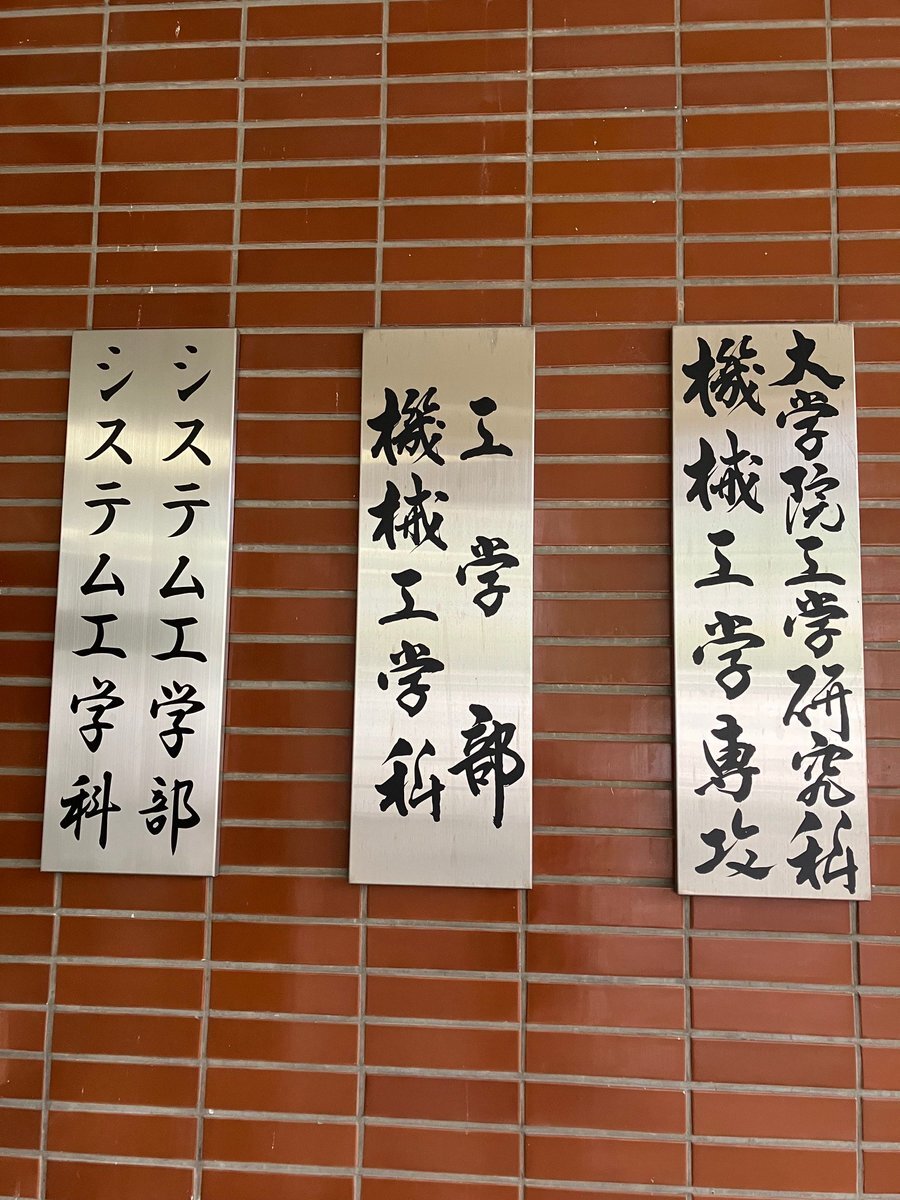 大学院工学研究科
機械工学専攻
工学部
機械工学科
システム工学部
システム工学科